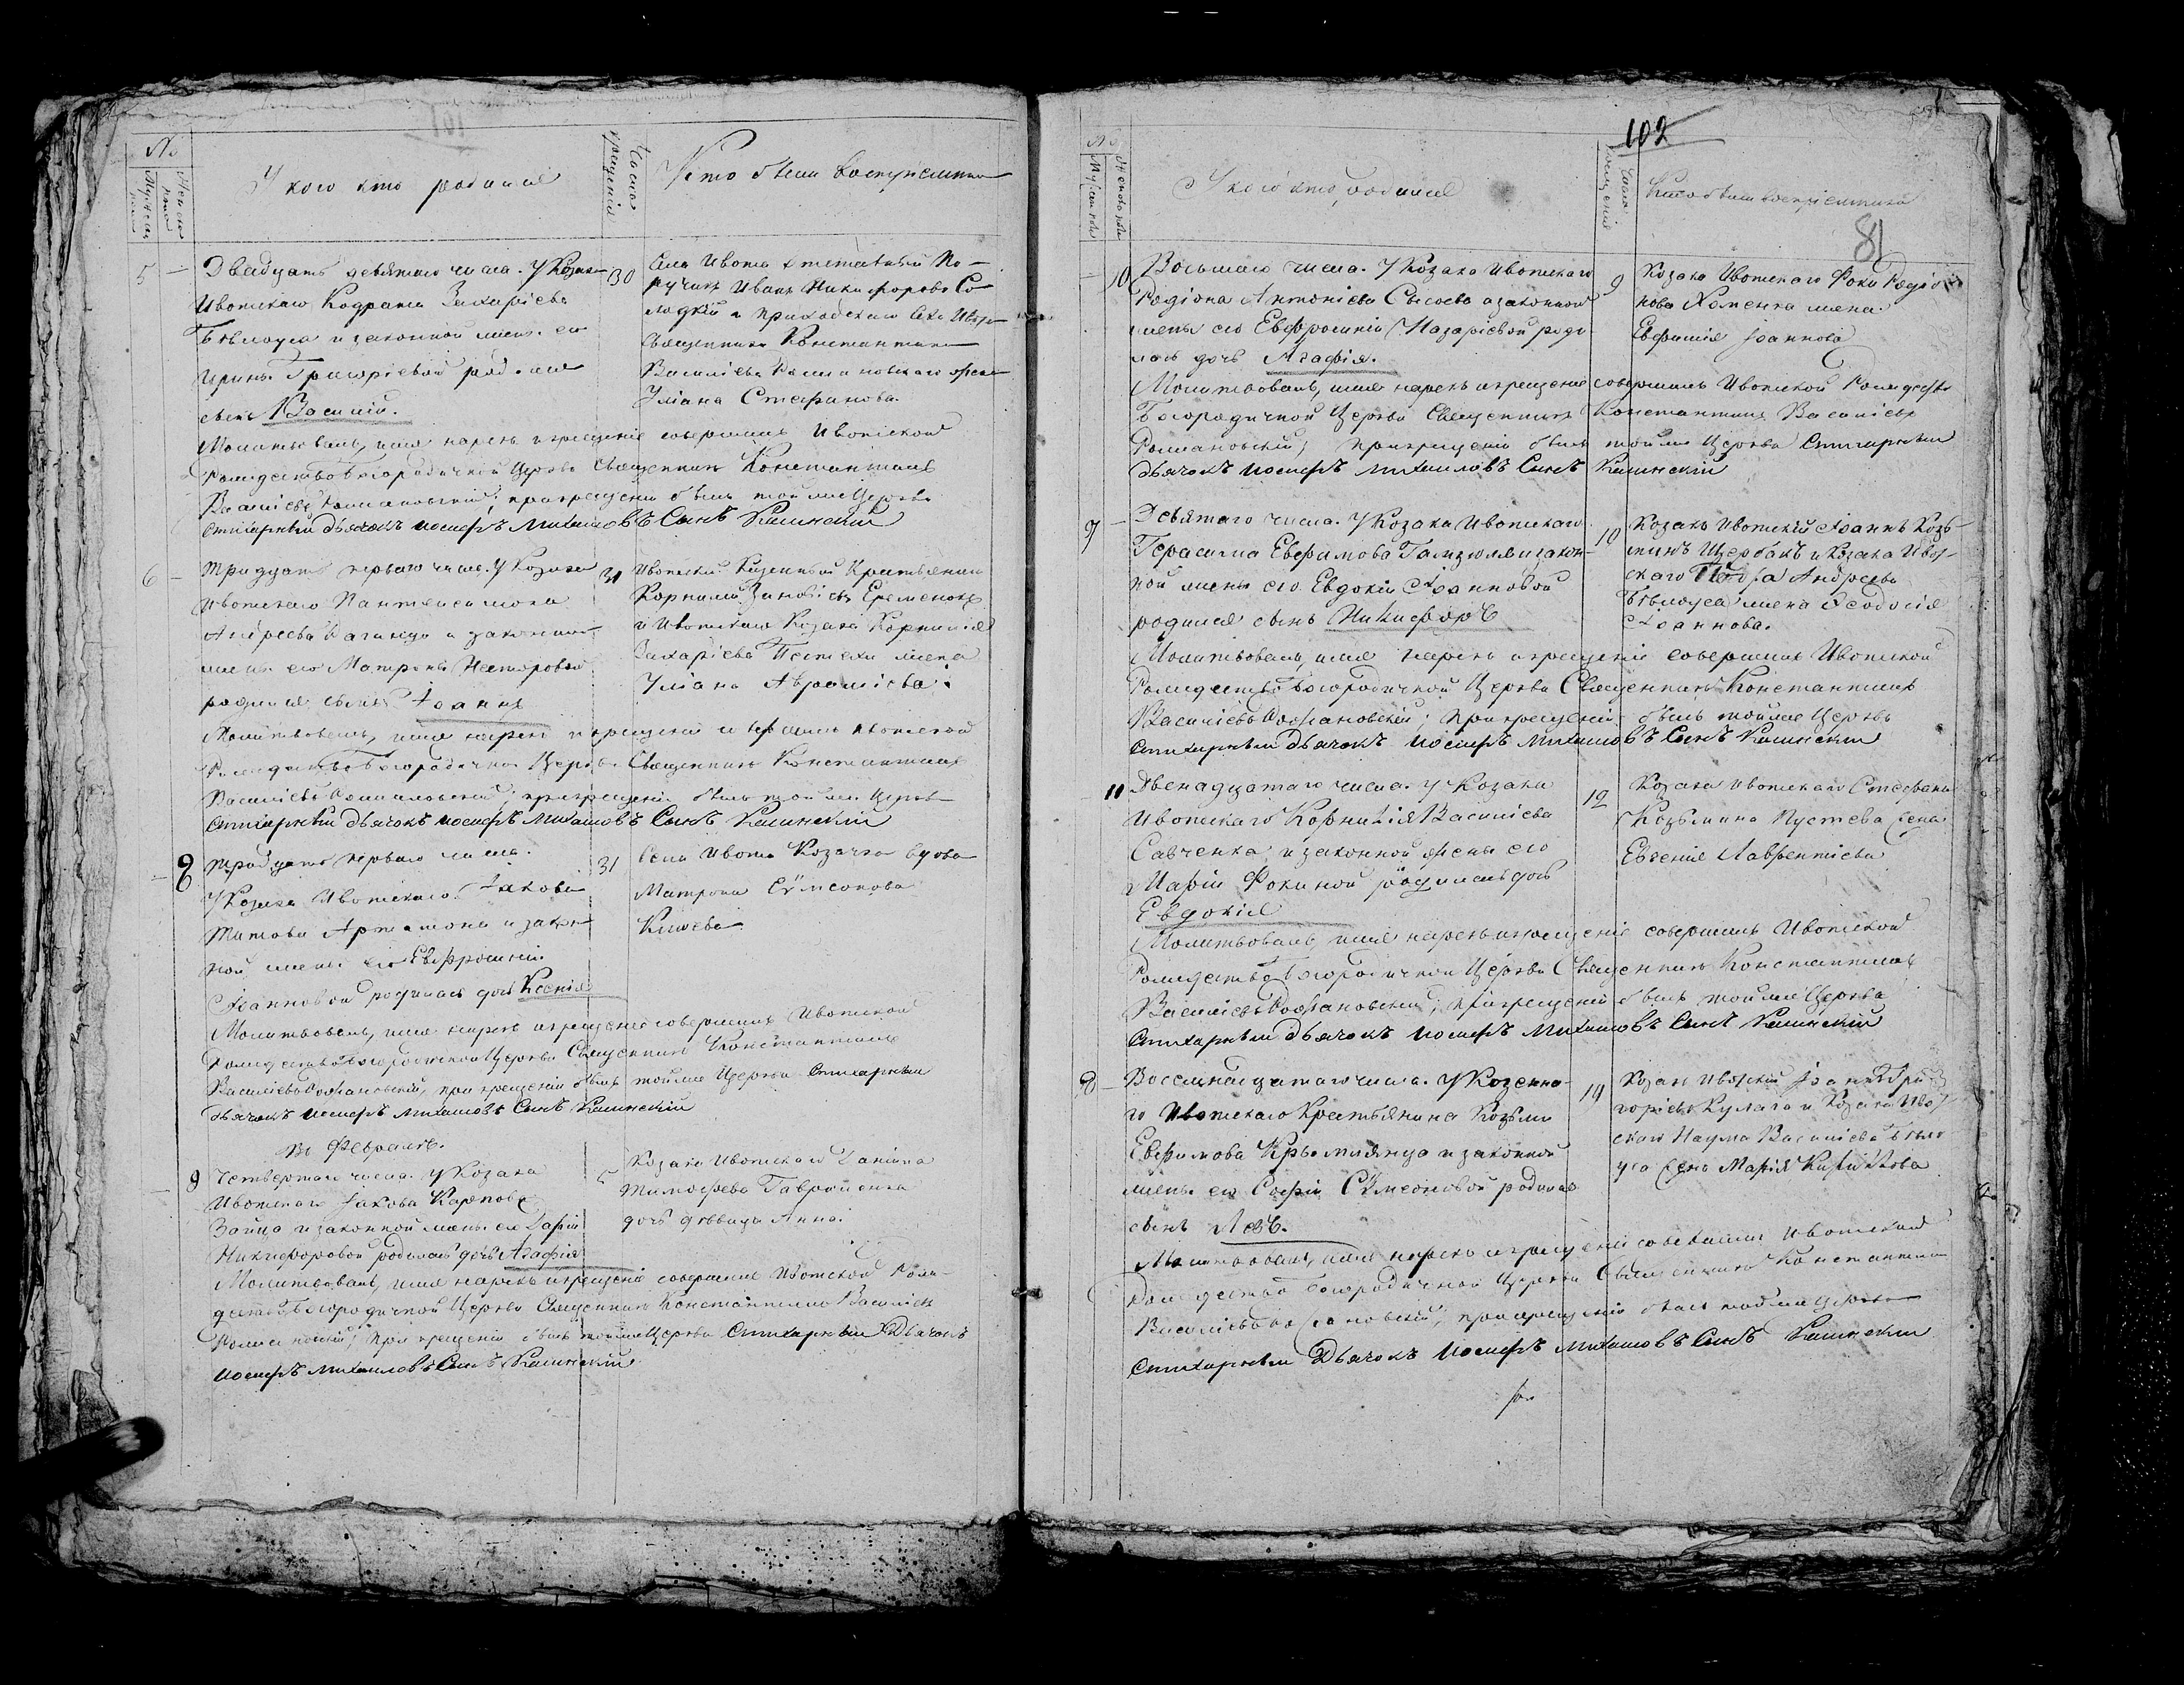 №
Мужеска
Женска
У кого кто родился
Число крещенія
Кто были восприемники
5 —
Двадцать девятого числа. У Козака
Ивотскаго Кодрата Захаріева
Бѣлоуса и законной жены его
Ирины Григоріевой родился
сынъ Василій.
30
Села Ивота отставный По-
ручикъ Иванъ Никифоровъ Со-
лодкій и приходскаго
Священника Константина
Василіева Романовскаго жена
Уліана Стефанова.
Молитвовалъ, имя нарекъ и крещеніе совершилъ Ивотской
Рождество Богородичной Церкви Священникъ Константинъ
Василіевъ Романовскій; при крещеніи былъ той же Церкви
Стихарный Дьячокъ Иосифъ Михаиловъ Сынъ
6 —
Тридцать перваго числа. У Козака
Ивотскаго Пантелеимона
Андреева и законной
жены его Матроны Нестеровой
родился сынъ Іоаннъ
31
Ивотскій Казенный Крестьянинъ
Корнилій Зиновіевъ Еременокъ
и Ивотскаго Козака Корнилія
Захаріева жена
Уліана Авраміева.
Молитвовалъ, имя нарекъ и крещеніе совершилъ Ивотской
Рождество Богородичной Церкви Священникъ Константинъ
Василіевъ Романовскій; при крещеніи былъ той же Церкви
Стихарный Дьячокъ Иосифъ Михаиловъ Сынъ
— 8
Тридцать перваго числа.
У Козака Ивотскаго Іакова
Титова Артамона и закон-
ной жены его Евфросиніи
Іоанновой родилась дочь Ксенія
31
Села Ивота Козачка вдова
Матрона Сѵмеонова
Молитвовалъ, имя нарекъ и крещеніе совершилъ Ивотской
Рождество Богородичной Церкви Священникъ Константинъ
Василіевъ Романовскій; при крещеніи былъ той же Церкви Стихарный
Дьячокъ Иосифъ Михаиловъ Сынъ
Въ Февралѣ.
— 9
Четвертаго числа. У Козака
Ивотскаго Іакова Карпова
Зайца и законной жены его Даріи
Никифоровой родилась дочь Агафія
5
Козака Ивотскаго Даніила
Тимофеева Гавриленка
дочь дѣвица Анна.
Молитвовалъ, имя нарекъ и крещеніе совершилъ Ивотской Рож-
дество Богородичной Церкви Священникъ Константинъ Василіевъ
Романовскій; при крещеніи былъ той же Церкви Стихарный Дьячокъ
Иосифъ Михаиловъ Сынъ
102
81
№
Мужеска
Женска
У кого кто родился
Число крещенія
Кто были восприемники
— 10
Восьмаго числа. У Козака Ивотскаго
Родіона Антоніева Сысоева и законной
жены его Евфросиніи Назаріевой роди-
лась дочь Агафія.
9
Козака Ивотскаго Фоки Родіо-
нова Хоменка жена
Евфимія Іоаннова
Молитвовалъ, имя нарекъ и крещеніе совершилъ Ивотской Рождество
Богородичной Церкви Священникъ Константинъ Василіевъ
Романовскій; при крещеніи былъ той же Церкви Стихарный
Дьячокъ Иосифъ Михаиловъ Сынъ
7 —
Девятаго числа. У Козака Ивотскаго
Герасима Евфимова и закон-
ной жены его Евдокіи Іоанновой
родился сынъ Никифоръ
10
Козакъ Ивотскій Іоаннъ Козь-
минъ Щербакъ и Козака Ивот-
скаго Андреева
Бѣлоуса жена Ѳеодосія
Іоаннова.
Молитвовалъ, имя нарекъ и крещеніе совершилъ Ивотской
Рождество Богородичной Церкви Священникъ Константинъ
Василіевъ Романовскій; при крещеніи былъ той же Церкви
Стихарный Дьячокъ Иосифъ Михаиловъ Сынъ
— 11
Двенадцатаго числа. У Козака
Ивотскаго Корнилія Василіева
Савченка и законной жены его
Маріи Фокиной родилась дочь
Евдокія
12
Козака Ивотскаго Стефана
Козьмина жена
Евгенія Лаврентіева
Молитвовалъ, имя нарекъ и крещеніе совершилъ Ивотской
Рождество Богородичной Церкви Священникъ Константинъ
Василіевъ Романовскій; при крещеніи былъ той же Церкви
Стихарный Дьячокъ Иосифъ Михаиловъ Сынъ
8 —
Восемнадцатаго числа. У Козенна-
го Ивотскаго Крестьянина Козьмы
Евфимова и законной
жены его Софіи Сѵмеоновой родился
сынъ Левъ.
19
Козакъ Ивотскій Іоаннъ Гри-
горіевъ Кулага и Козака Ивот-
скаго Наума Василіева Бѣло-
уса жена Марія
Молитвовалъ, имя нарекъ и крещеніе совершилъ Ивотской
Рождество Богородичной Церкви Священникъ Константинъ
Василіевъ Романовскій; при крещеніи былъ той же Церкви
Стихарный Дьячокъ Иосифъ Михаиловъ Сынъ